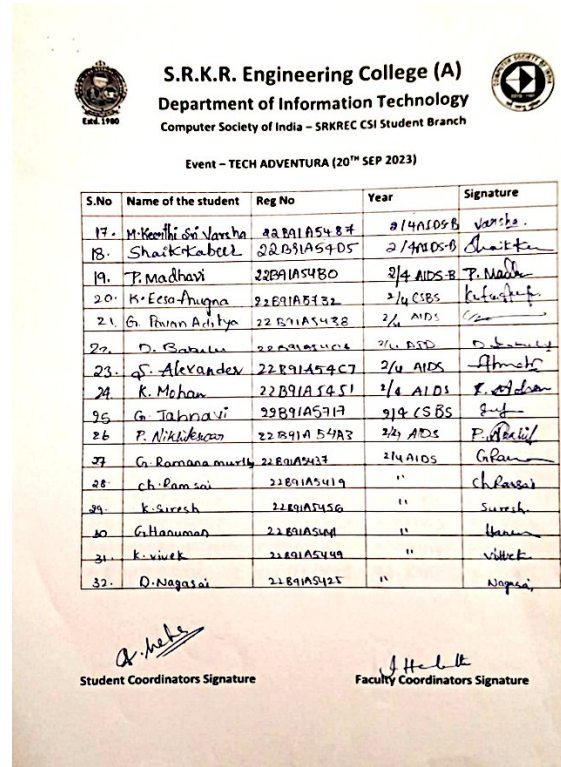 S.R.K.R. Engineering College (A)
Estd. 1980
Department of Information Technology
Computer Society of India – SRKREC CSI Student Branch
Event – TECH ADVENTURA (20TH SEP 2023)
S.No Name of the student Reg No Year Signature
17. M. Keerthi Sri Varsha 22B91A5487 2/4 AIDS-B Varsha.
18. Shaik Kabeer 22B91A54D5 2/4 AIDS-B
19. P. Madhavi 22B91A5480 2/4 AIDS-B P. Madhavi
20. 22B91A5732 2/4 CSBS
21. G. Pavan Aditya 22B91A5438 2/4 AIDS
22. D. Babulu 2/4
23. S. Alexander 22B91A54C7 2/4 AIDS
24. K. Mohan 22B91A5451 2/4 AIDS
25 G. Jahnavi 22B91A5717 2/4 CSBS
26 P. 22B91A54A3 2/4 AIDS P.
27 G. Ramana murthy 22B91A5437 2/4 AIDS
28. ch. Ram sai 22B91A5419 "
29. K. Suresh 22B91A5456 " Suresh.
30 G. Hanuman "
31. K. vivek 22B91A5449 " Vivek
32. D. Nagasai 22B91A5425 " Nagasai
Student Coordinators Signature Faculty Coordinators Signature